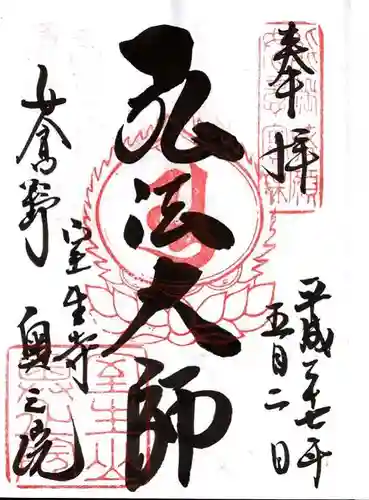 奉拝
平成二十七年
五月二日
弘法大師
女人高野
室生寺
奥之院